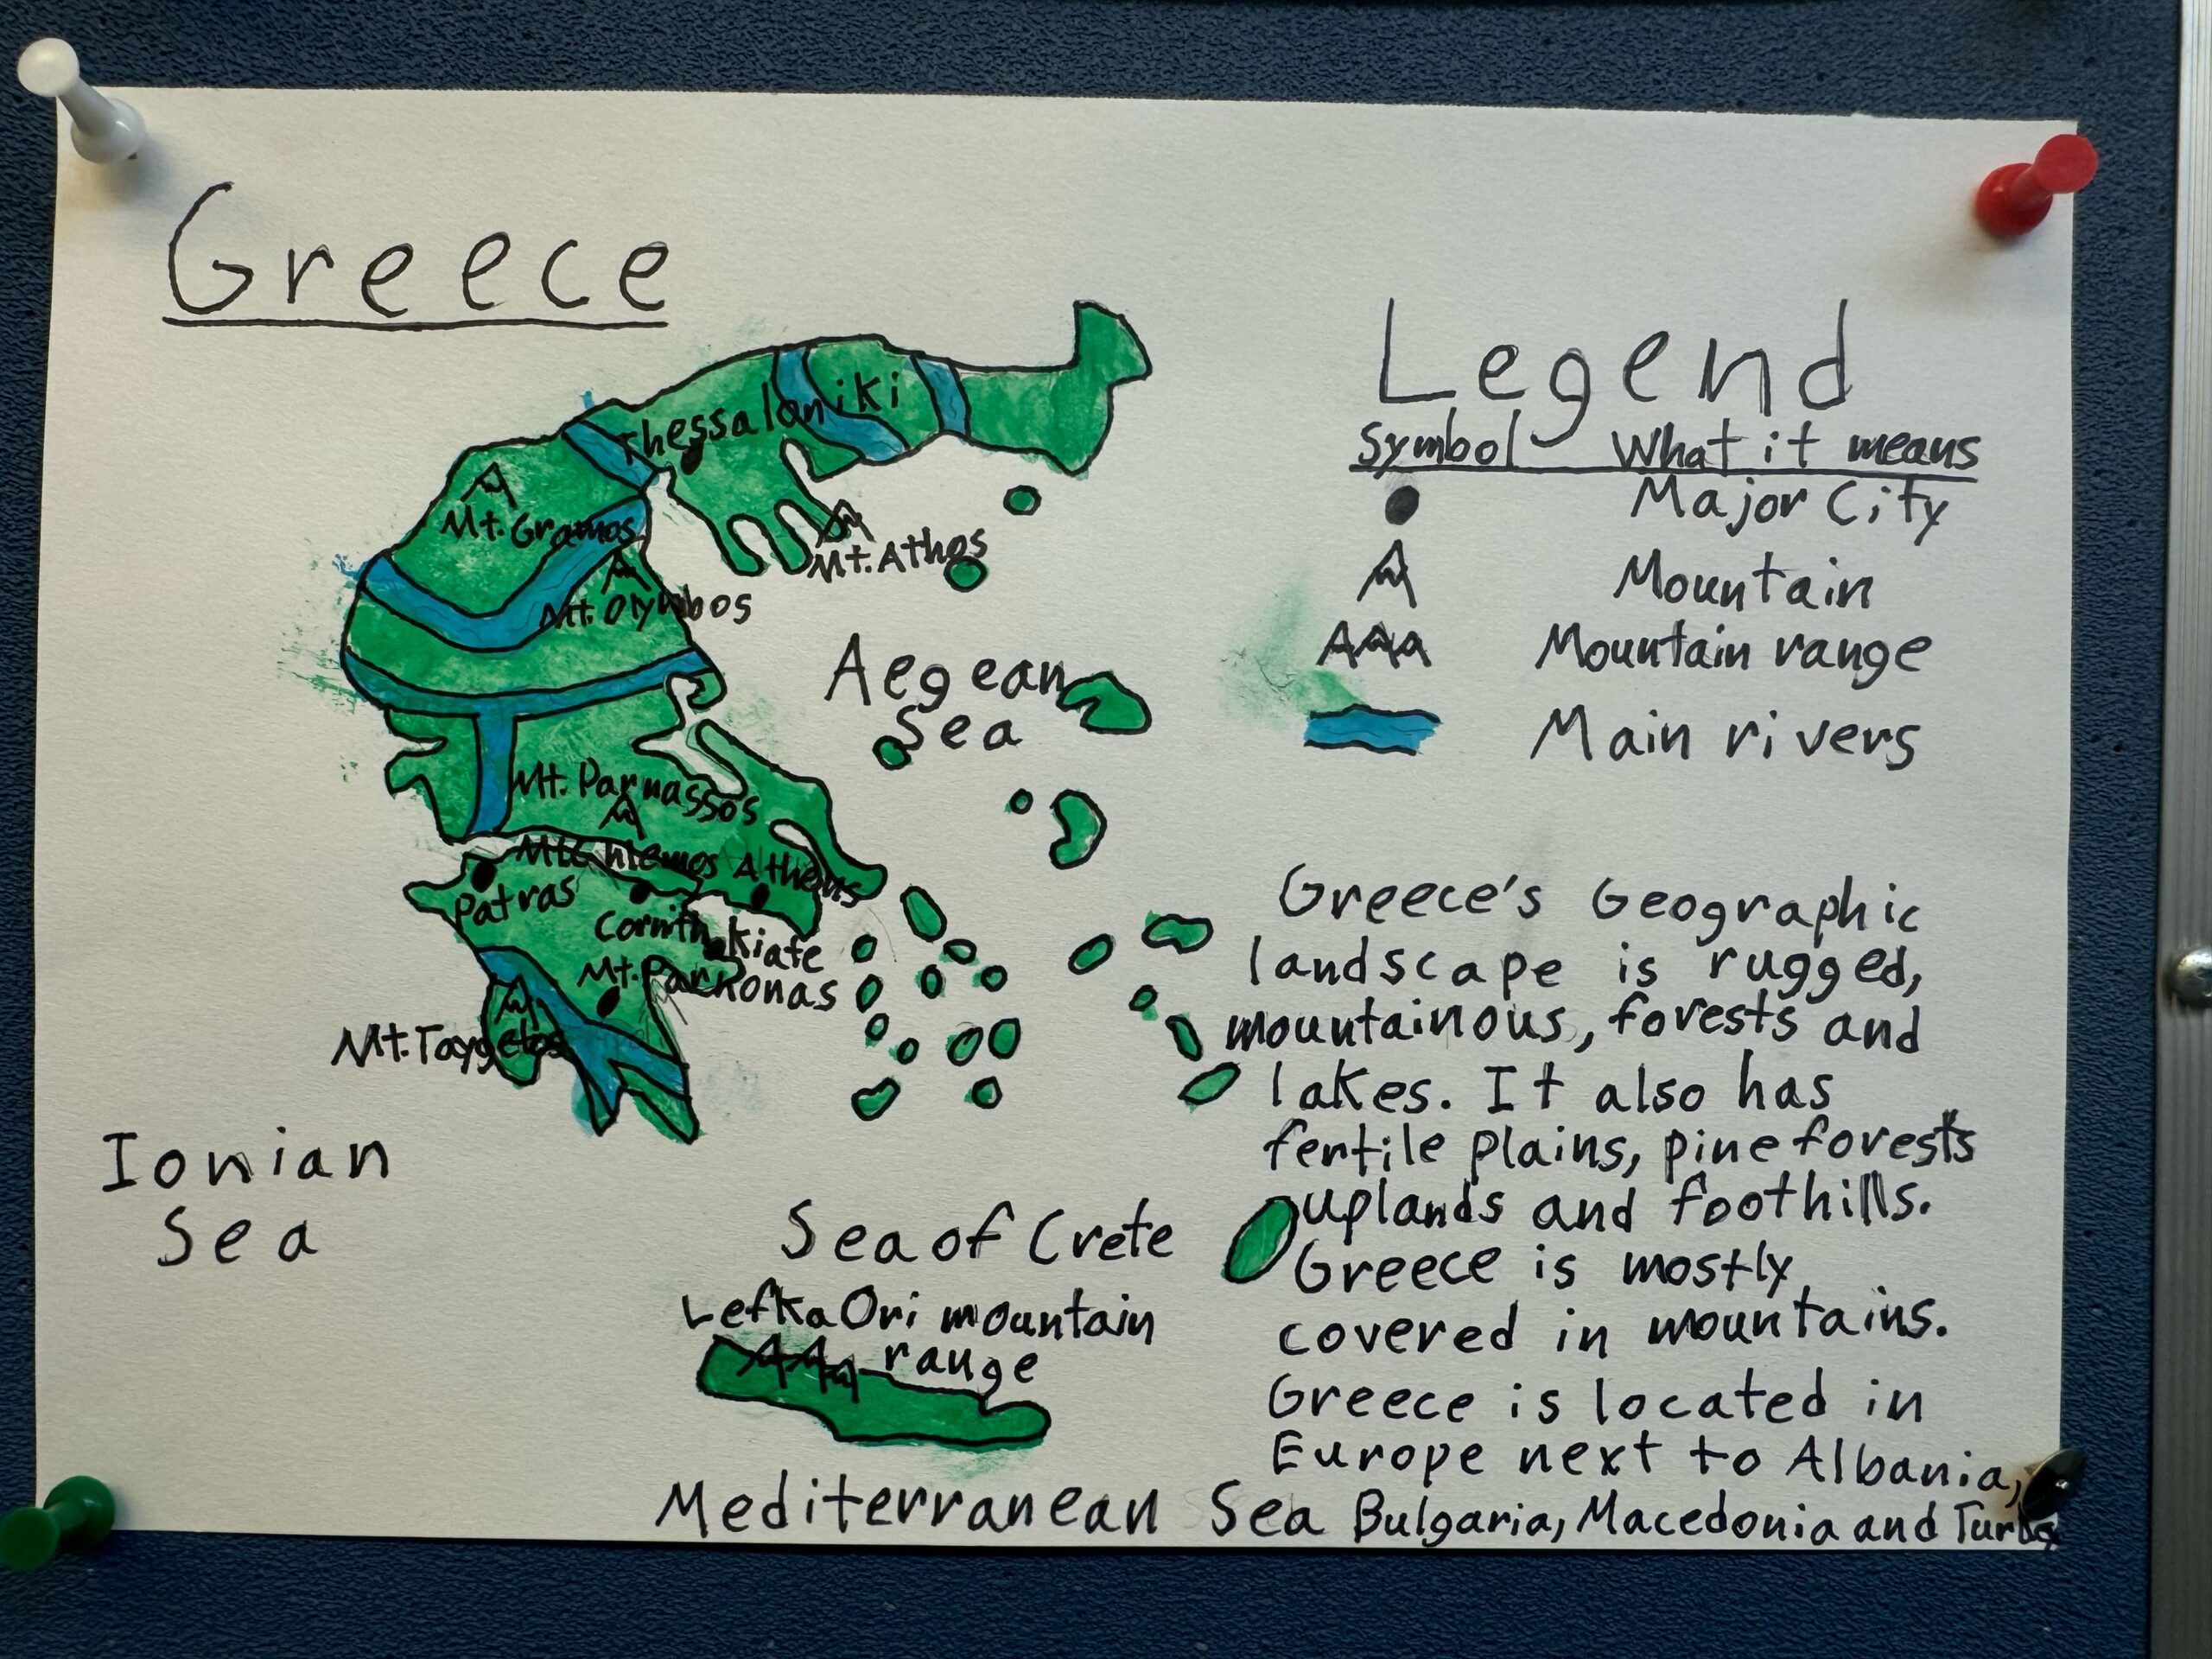 Greece
Thessaloniki
Mt. Gramos
Mt. Athos
Mt. Olymbos
Aegean
Sea
Mt. Parnassos
Athens
Patras
Corinth
Mt. Parnonas
Mt. Taygetos
Ionian
Sea
Sea of Crete
Lefka Ori mountain
range
Mediterranean Sea
Legend
Symbol What it means
Major City
Mountain
Mountain range
Main rivers
Greece's Geographic
landscape is rugged,
mountainous, forests and
lakes. It also has
fertile plains, pine forests
uplands and foothills.
Greece is mostly
covered in mountains.
Greece is located in
Europe next to Albania,
Bulgaria, Macedonia and